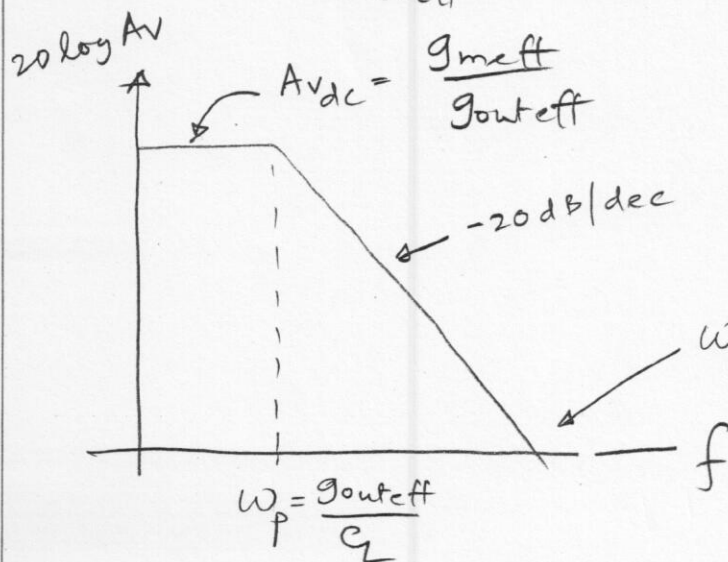 20 log Av
Avdc = gmeff
gouteff
-20 dB/dec
ω
f
ωp = gouteff
CL